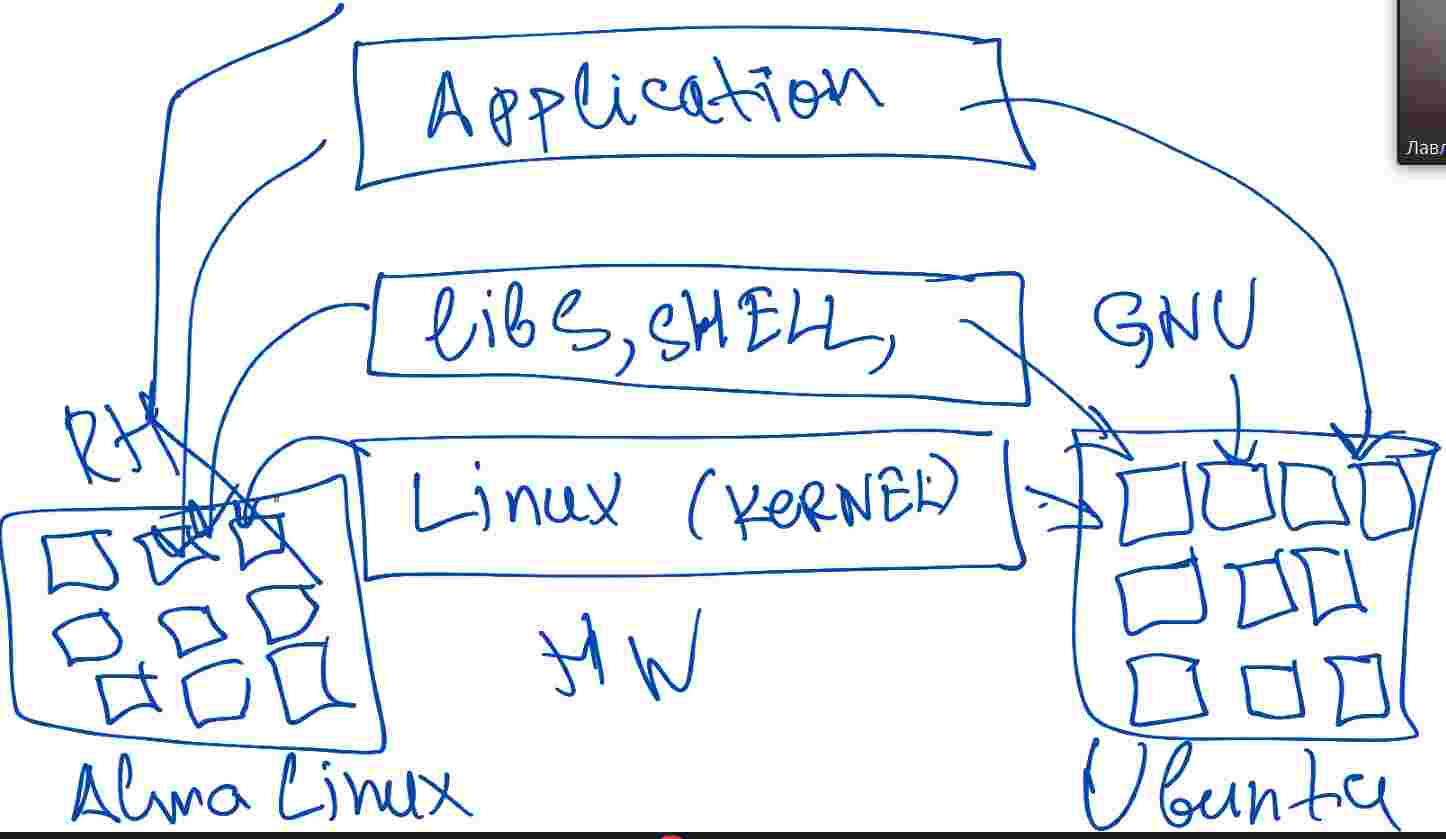 Application
libs, SHELL,
GNU
RH
Linux (KERNEL)
HW
Alma Linux
Ubuntu
Лавл